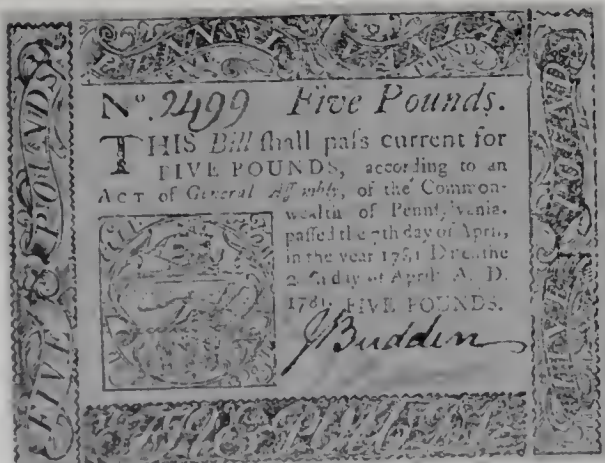 PENNSYLVANIA
FIVE POUNDS
No. 2499 Five Pounds.
THIS Bill ſhall paſs current for
FIVE POUNDS, according to an
ACT of General Aſſembly, of the Common-
wealth of Pennſylvania,
paſſed the 7th day of April,
in the year 1781 Dated the
day of April A. D.
1781. FIVE POUNDS.
J Budden
FIVE POUNDS
FIVE POUNDS